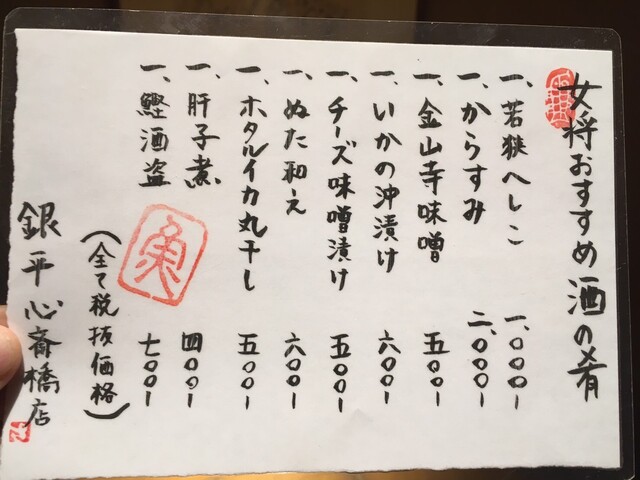 女将おすすめ酒の肴
一、若狭へしこ 一、〇〇〇ー
一、からすみ 二、〇〇〇ー
一、金山寺味噌 五〇〇ー
一、いかの沖漬け 六〇〇ー
一、チーズ味噌漬け 五〇〇ー
一、ぬた和え 六〇〇ー
一、ホタルイカ丸干し 五〇〇ー
一、肝子煮 四〇〇ー
一、鰹酒盗 七〇〇ー
魚
(全て税抜価格)
銀平心斎橋店